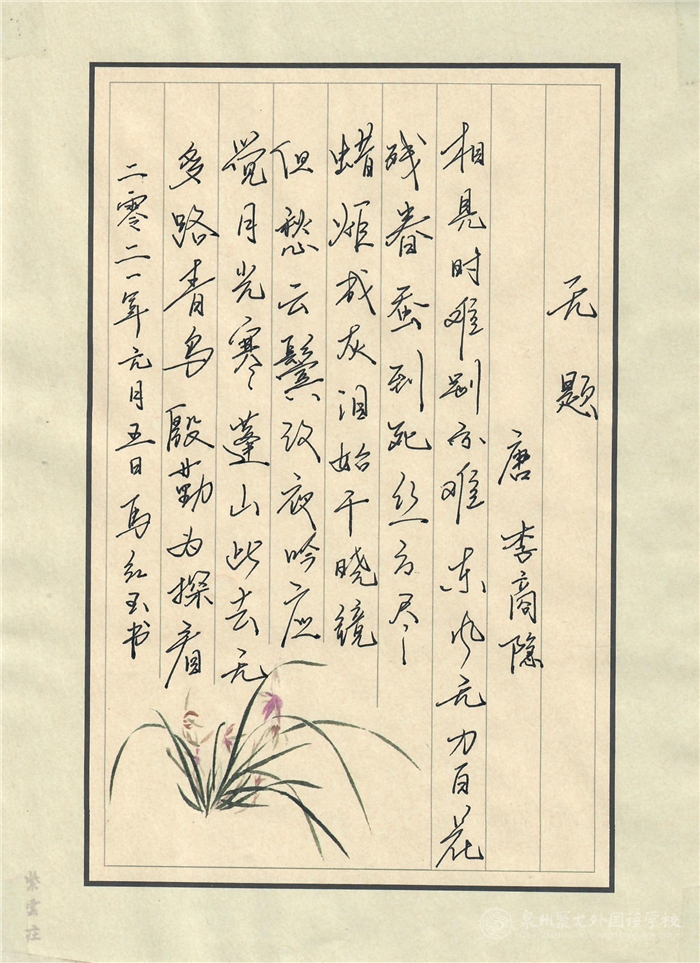 无题
唐 李商隐
相见时难别亦难东风无力百花
残春蚕到死丝方尽
蜡炬成灰泪始干晓镜
但愁云鬓改夜吟应
觉月光寒蓬山此去无
多路青鸟殷勤为探看
二零二一年元月五日 马红玉书
泉州聚龙外国语学校